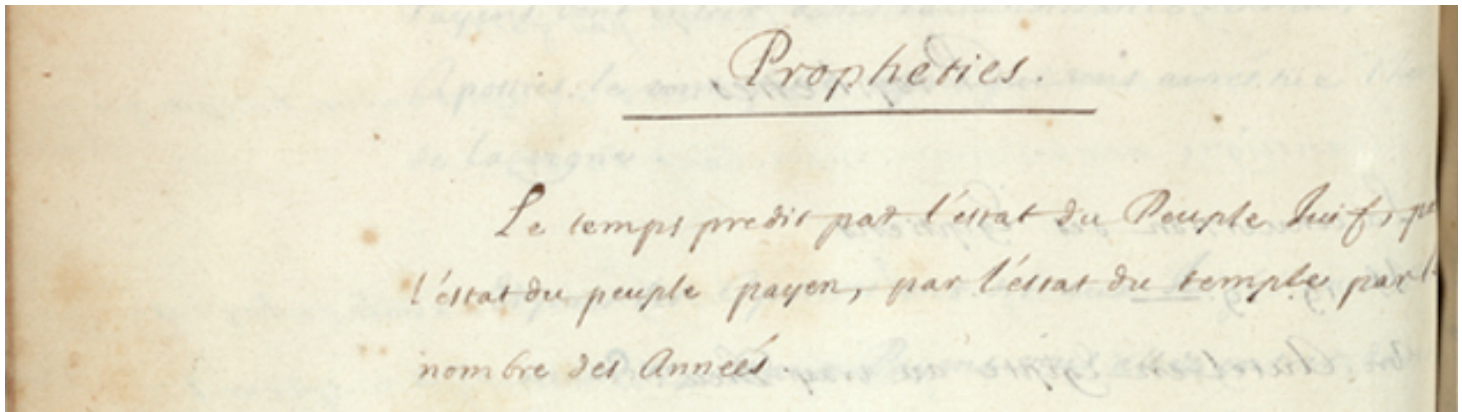 Propheties.
Le temps predit par l'estat du Peuple Juif, p
l'estat du peuple payen, par l'estat du temple par l
nombre des Années.